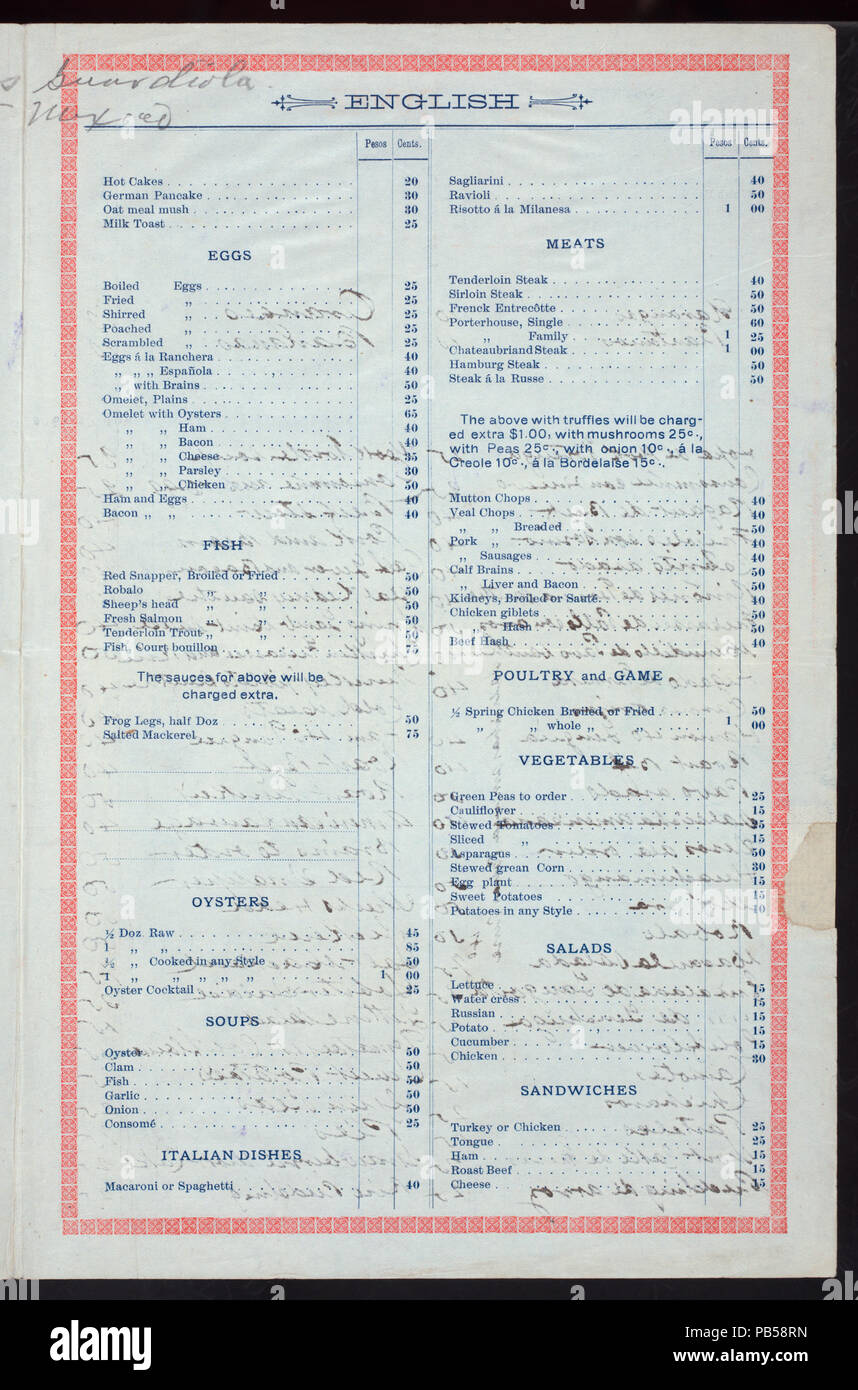 Guardiola
ENGLISH
Pesos Cents.
Hot Cakes 20
German Pancake 30
Oat meal mush 30
Milk Toast 25
EGGS
Boiled Eggs 25
Fried „ 25
Shirred „ 25
Poached „ 25
Scrambled „ 25
Eggs á la Ranchera 40
„ „ „ Española 40
„ with Brains 50
Omelet, Plains 25
Omelet with Oysters 65
„ „ Ham 40
„ „ Bacon 40
„ „ Cheese 35
„ „ Parsley 30
„ „ Chicken 50
Ham and Eggs 40
Bacon „ „ 40
FISH
Red Snapper, Broiled or Fried 50
Robalo „ „ 50
Sheep's head „ „ 50
Fresh Salmon „ „ 50
Tenderloin Trout „ „ 50
Fish, Court bouillon 75
The sauces for above will be
charged extra.
Frog Legs, half Doz 50
Salted Mackerel 75
OYSTERS
½ Doz. Raw 45
1 „ „ 85
½ „ Cooked in any Style 50
1 „ „ „ „ „ 1 00
Oyster Cocktail 25
SOUPS
Oyster 50
Clam 50
Fish 50
Garlic 50
Onion 50
Consomé 25
ITALIAN DISHES
Macaroni or Spaghetti 40
Pesos Cents.
Sagliarini 40
Ravioli 50
Risotto á la Milanesa 1 00
MEATS
Tenderloin Steak 40
Sirloin Steak 50
Frenck Entrecôtte 50
Porterhouse, Single 60
„ Family 1 25
Chateaubriand Steak 1 00
Hamburg Steak 50
Steak á la Russe 50
The above with truffles will be charg-
ed extra $1.00, with mushrooms 25c.,
with Peas 25c., with onion 10c., á la
Creole 10c., á la Bordelaise 15c..
Mutton Chops 40
Veal Chops 40
„ „ Breaded 50
Pork „ 40
„ Sausages 40
Calf Brains 50
„ Liver and Bacon 50
Kidneys, Broiled or Sauté 40
Chicken giblets 50
„ Hash 50
Beef Hash 40
POULTRY and GAME
½ Spring Chicken Broiled or Fried 50
„ „ whole „ „ 1 00
VEGETABLES
Green Peas to order 25
Cauliflower 15
Stewed Tomatoes 25
Sliced „ 15
Asparagus 50
Stewed grean Corn 30
Egg plant 15
Sweet Potatoes 15
Potatoes in any Style 40
SALADS
Lettuce 15
Water cress 15
Russian 15
Potato 15
Cucumber 15
Chicken 30
SANDWICHES
Turkey or Chicken 25
Tongue 25
Ham 15
Roast Beef 15
Cheese 15
alamy
PB58RN
www.alamy.com